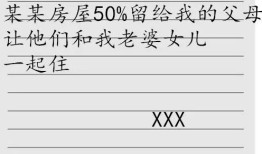 某某房屋50%留给我的父母
让他们和我老婆女儿
一起住
XXX